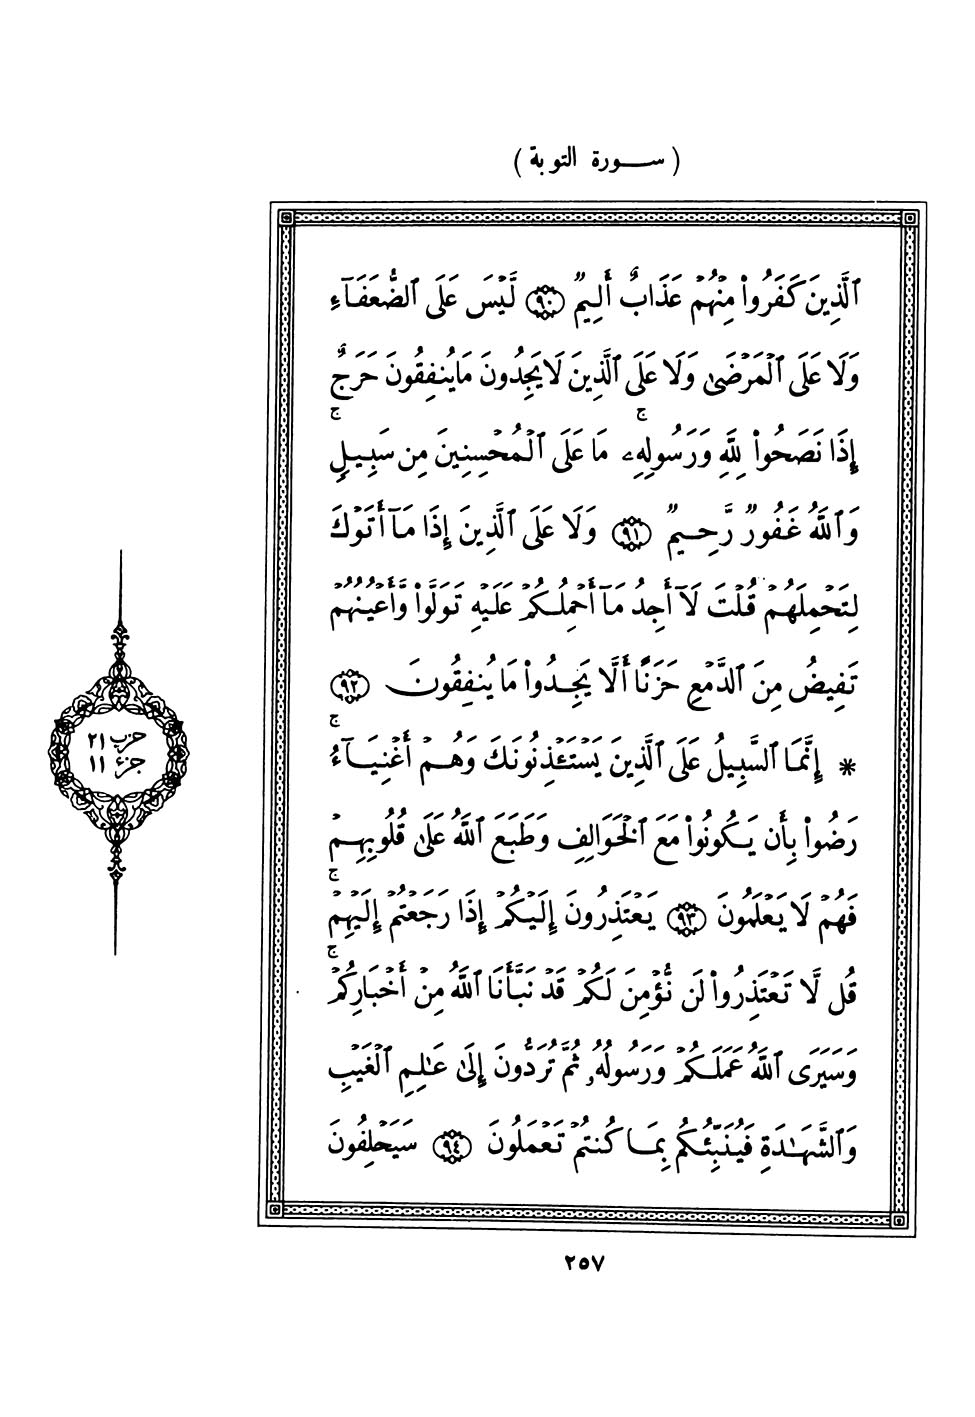 ( سورة التوبة )
ٱلَّذِينَ كَفَرُواْ مِنْهُمْ عَذَابٌ أَلِيمٌ ﴿٩٠﴾ لَّيْسَ عَلَى ٱلضُّعَفَآءِ
وَلَا عَلَى ٱلْمَرْضَىٰ وَلَا عَلَى ٱلَّذِينَ لَا يَجِدُونَ مَا يُنفِقُونَ حَرَجٌ
إِذَا نَصَحُواْ لِلَّهِ وَرَسُولِهِۦ ۚ مَا عَلَى ٱلْمُحْسِنِينَ مِن سَبِيلٍ ۚ
وَٱللَّهُ غَفُورٌ رَّحِيمٌ ﴿٩١﴾ وَلَا عَلَى ٱلَّذِينَ إِذَا مَآ أَتَوْكَ
لِتَحْمِلَهُمْ قُلْتَ لَآ أَجِدُ مَآ أَحْمِلُكُمْ عَلَيْهِ تَوَلَّواْ وَّأَعْيُنُهُمْ
تَفِيضُ مِنَ ٱلدَّمْعِ حَزَنًا أَلَّا يَجِدُواْ مَا يُنفِقُونَ ﴿٩٢﴾
* إِنَّمَا ٱلسَّبِيلُ عَلَى ٱلَّذِينَ يَسْتَـْٔذِنُونَكَ وَهُمْ أَغْنِيَآءُ ۚ
رَضُواْ بِأَن يَكُونُواْ مَعَ ٱلْخَوَالِفِ وَطَبَعَ ٱللَّهُ عَلَىٰ قُلُوبِهِمْ
فَهُمْ لَا يَعْلَمُونَ ﴿٩٣﴾ يَعْتَذِرُونَ إِلَيْكُمْ إِذَا رَجَعْتُمْ إِلَيْهِمْ ۚ
قُل لَّا تَعْتَذِرُواْ لَن نُّؤْمِنَ لَكُمْ قَدْ نَبَّأَنَا ٱللَّهُ مِنْ أَخْبَارِكُمْ ۚ
وَسَيَرَى ٱللَّهُ عَمَلَكُمْ وَرَسُولُهُۥ ثُمَّ تُرَدُّونَ إِلَىٰ عَـٰلِمِ ٱلْغَيْبِ
وَٱلشَّهَـٰدَةِ فَيُنَبِّئُكُم بِمَا كُنتُمْ تَعْمَلُونَ ﴿٩٤﴾ سَيَحْلِفُونَ
حزب ٢١
جزء ١١
٢٥٧